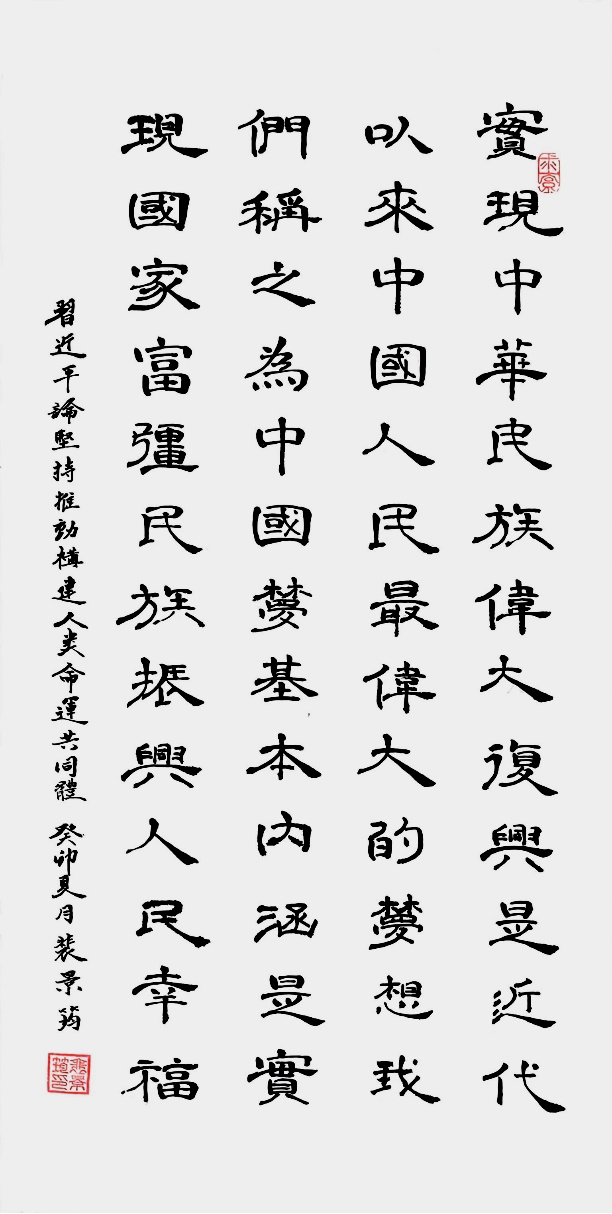 實現中華民族偉大復興是近代
以來中國人民最偉大的夢想我
們稱之為中國夢基本内涵是實
現國家富彊民族振興人民幸福
習近平論堅持推動構建人类命運共同體 癸卯夏月裴景筠